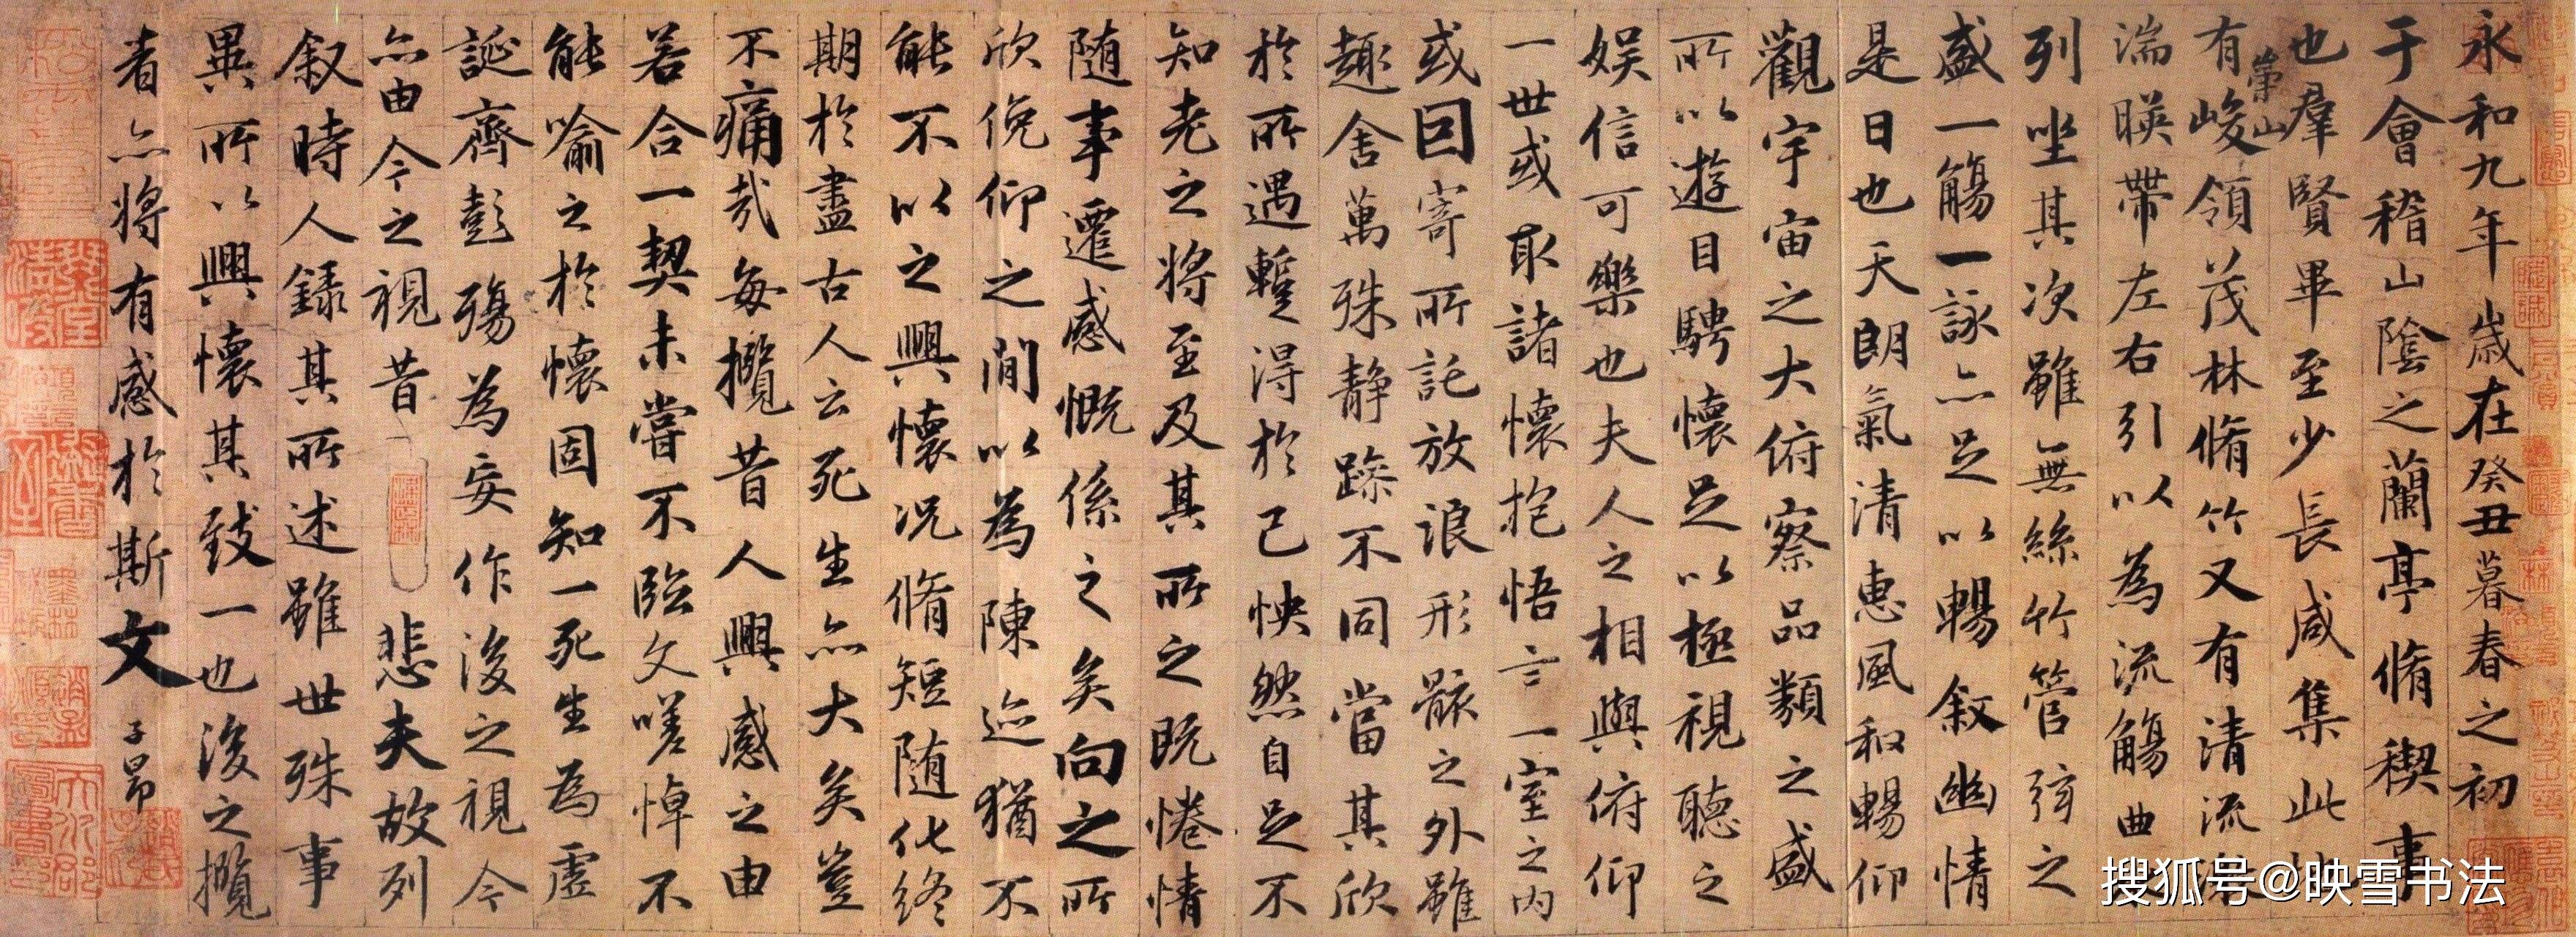 永和九年歲在癸丑暮春之初
于會稽山陰之蘭亭脩稧事
也羣賢畢至少長咸集此地
崇山
有峻領茂林脩竹又有清流激
湍暎帶左右引以為流觴曲
列坐其次雖無絲竹管弦之
盛一觴一詠亦足以暢叙幽情
是日也天朗氣清惠風和暢仰
觀宇宙之大俯察品類之盛
所以遊目騁懷足以極視聽之
娛信可樂也夫人之相與俯仰
一世或取諸懷抱悟言一室之内
或因寄所託放浪形骸之外雖
趣舍萬殊静躁不同當其欣
於所遇蹔得於己怏然自足不
知老之將至及其所之既惓情
随事遷感慨係之矣向之所
欣俛仰之閒以為陳迹猶不
能不以之興懷況脩短随化終
期於盡古人云死生亦大矣豈
不痛哉每攬昔人興感之由
若合一契未嘗不臨文嗟悼不
能喻之於懷固知一死生為虛
誕齊彭殤為妄作後之視今
亦由今之視昔悲夫故列
叙時人録其所述雖世殊事
異所以興懷其致一也後之攬
者亦將有感於斯文 子昂
搜狐号@映雪书法